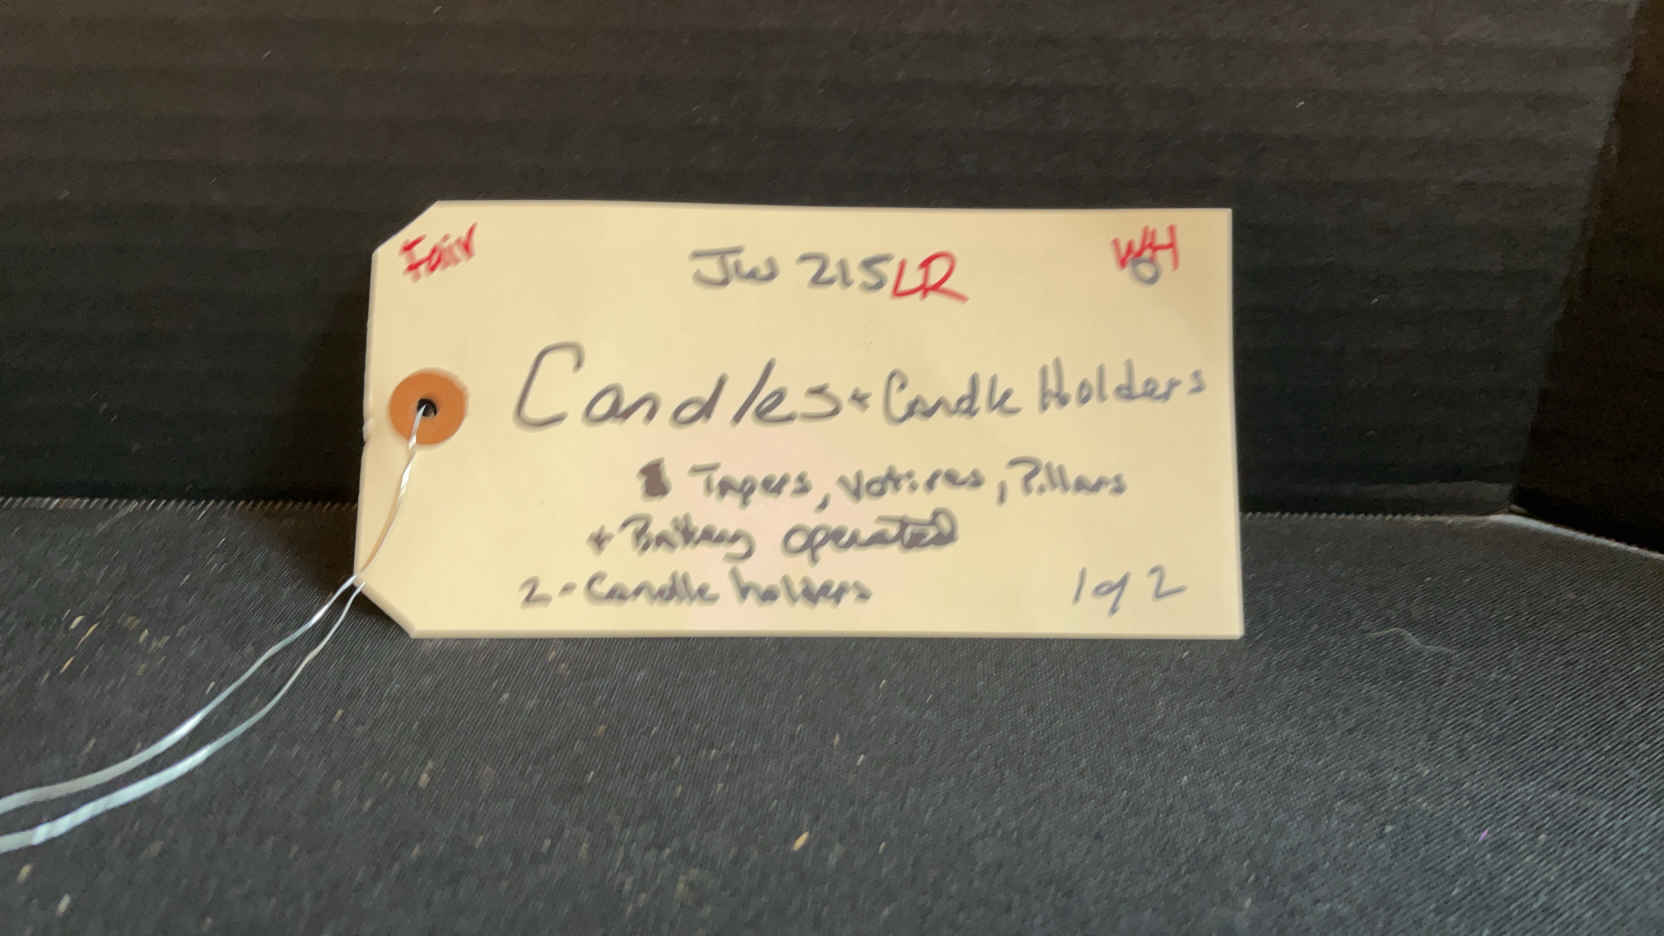 Fair JW 215LR WH
Candles + Candle Holders
Tapers, Votives, Pillars
+ Battery operated
2 - Candle holders 1 of 2